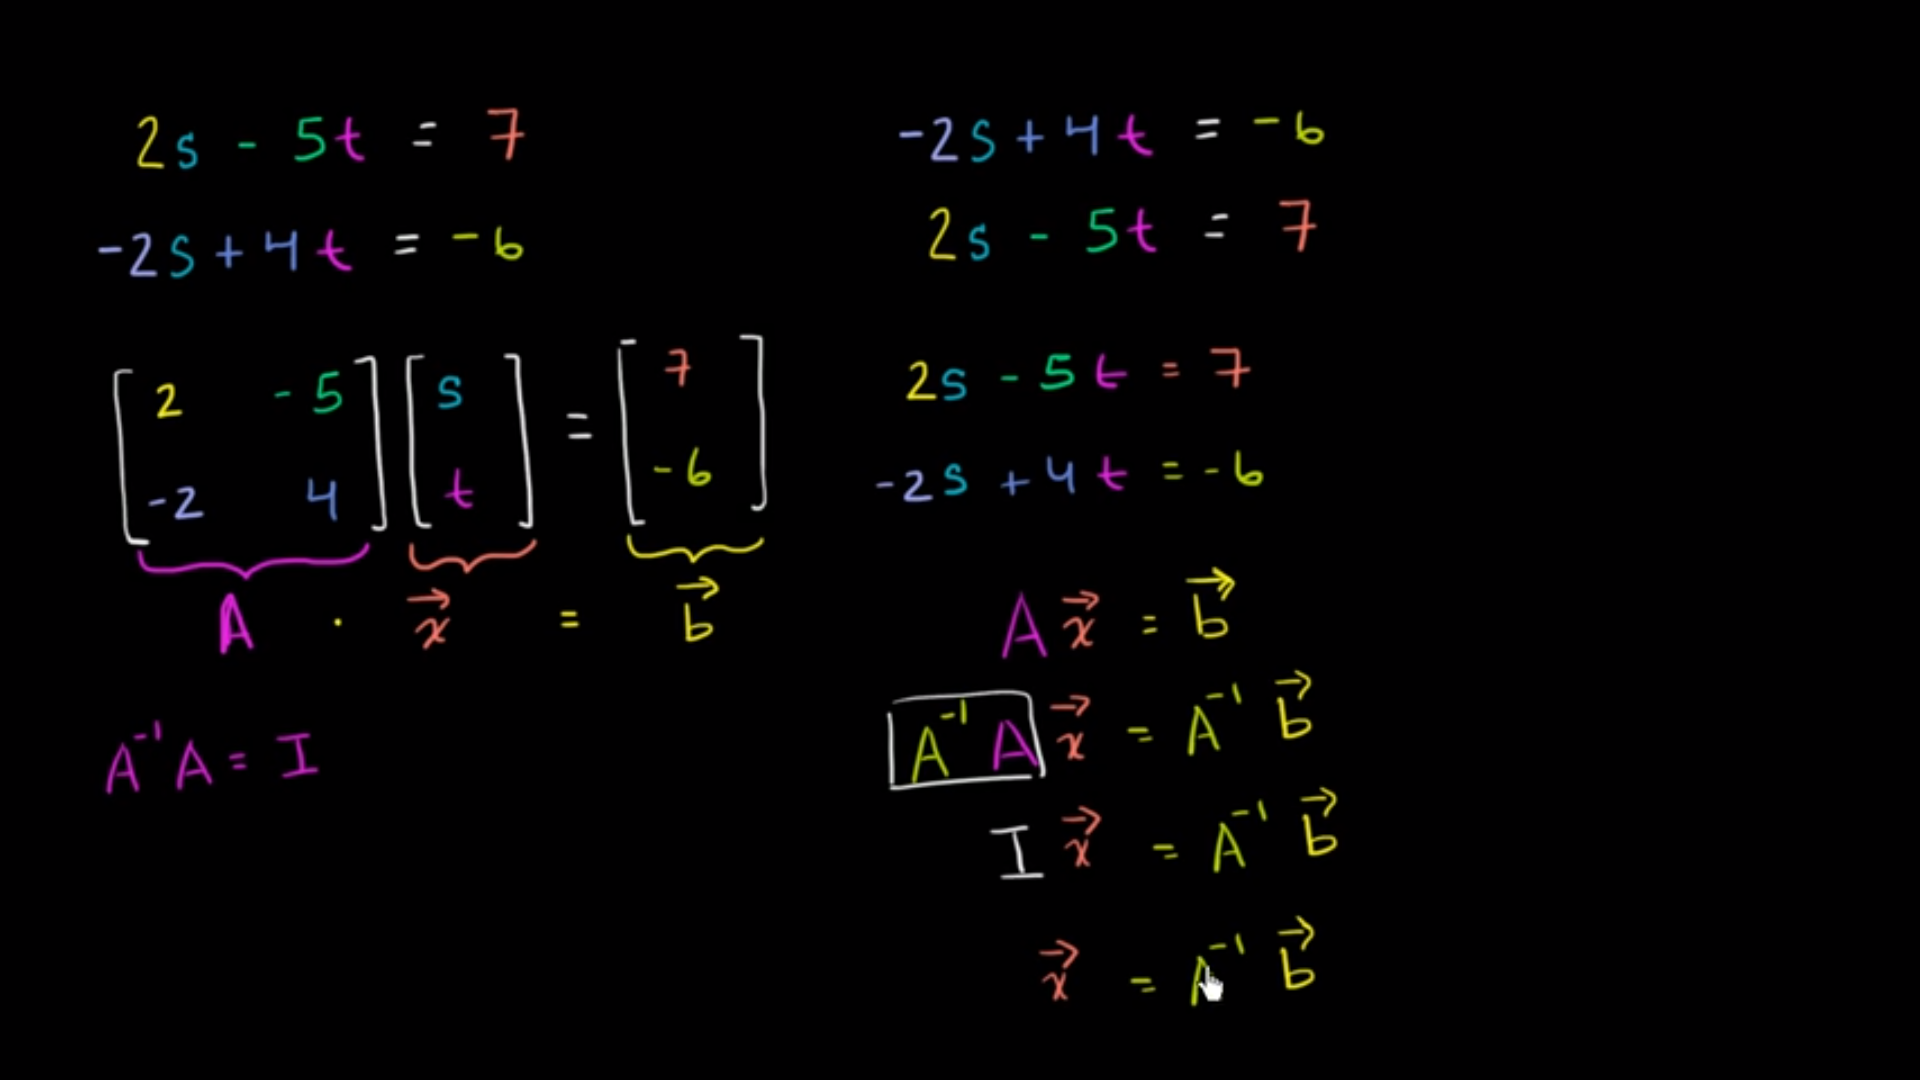 2s - 5t = 7
-2s + 4t = -6
[2 -5] [s] = [7]
[-2 4] [t] [-6]
A · x⃗ = b⃗
A⁻¹A = I
-2s + 4t = -6
2s - 5t = 7
2s - 5t = 7
-2s + 4t = -6
A x⃗ = b⃗
A⁻¹ A x⃗ = A⁻¹ b⃗
I x⃗ = A⁻¹ b⃗
x⃗ = A⁻¹ b⃗